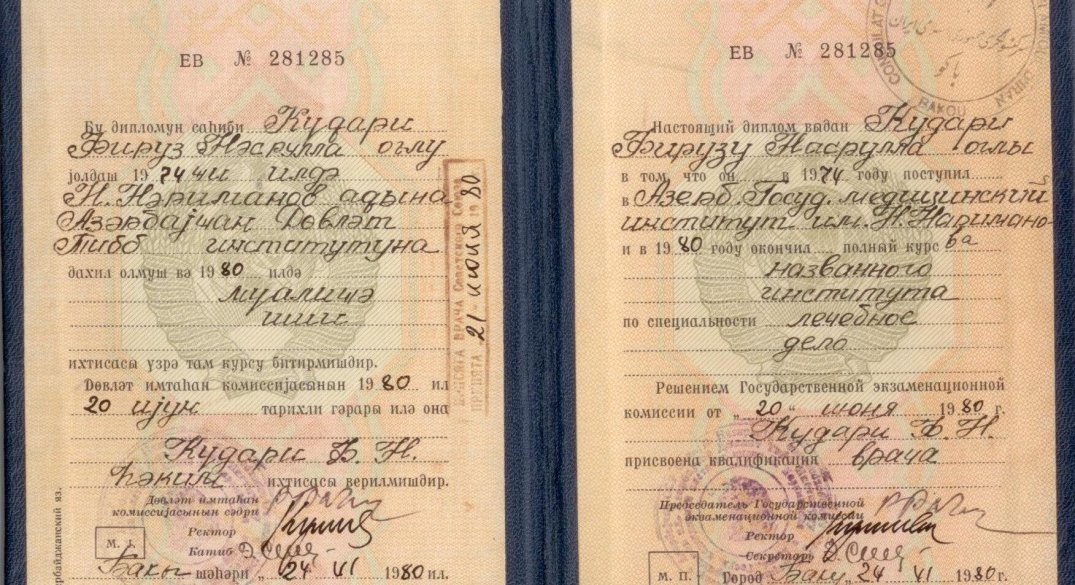 ЕВ № 281285
Бу дипломун саһиби Кудари
Фируз Насрулла оглу
јолдаш 1974 чи илдә
Н. Нәриманов адына
Азәрбајҹан Дөвләт
Тибб институтуна
дахил олмуш вә 1980 илдә
муалиҹә
иши
ихтисасы үзрә там курсу битирмишдир.
Дөвләт имтаһан комиссијасынын 1980 ил
20 ијун тарихли гәрары илә она
Кудари Ф. Н.
һәким ихтисасы верилмишдир.
Дөвләт имтаһан
комиссијасынын сәдри
Ректор
Катиб
М. Ј.
Бакы шәһәри „24" VI 1980 ил.
ПРИСЯГА ВРАЧА Советского Союза
ПРИНЯТА 21 - июля 1980
ЕВ № 281285
Настоящий диплом выдан Кудари
Фирузу Насрулла оглы
в том, что он в 1974 году поступил
в Азерб. Госуд. медицинский
институт им. Н. Наримано-
ва
и в 1980 году окончил полный курс
названного
института
по специальности лечебное
дело
Решением Государственной экзаменационной
комиссии от „20" июня 1980 г.
Кудари Ф. Н.
присвоена квалификация врача
Председатель Государственной
экзаменационной комиссии
Ректор
Секретарь
М. П.
Город Баку „24" VI 1980 г.
BAKOU